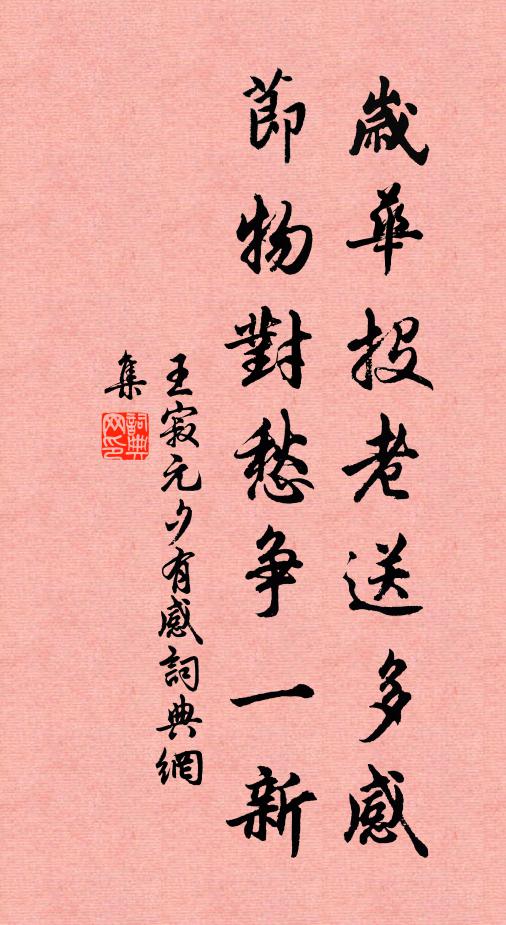 歲華投老送多感
節物對愁争一新
王寂元夕有感詞典網
集
詞典網印